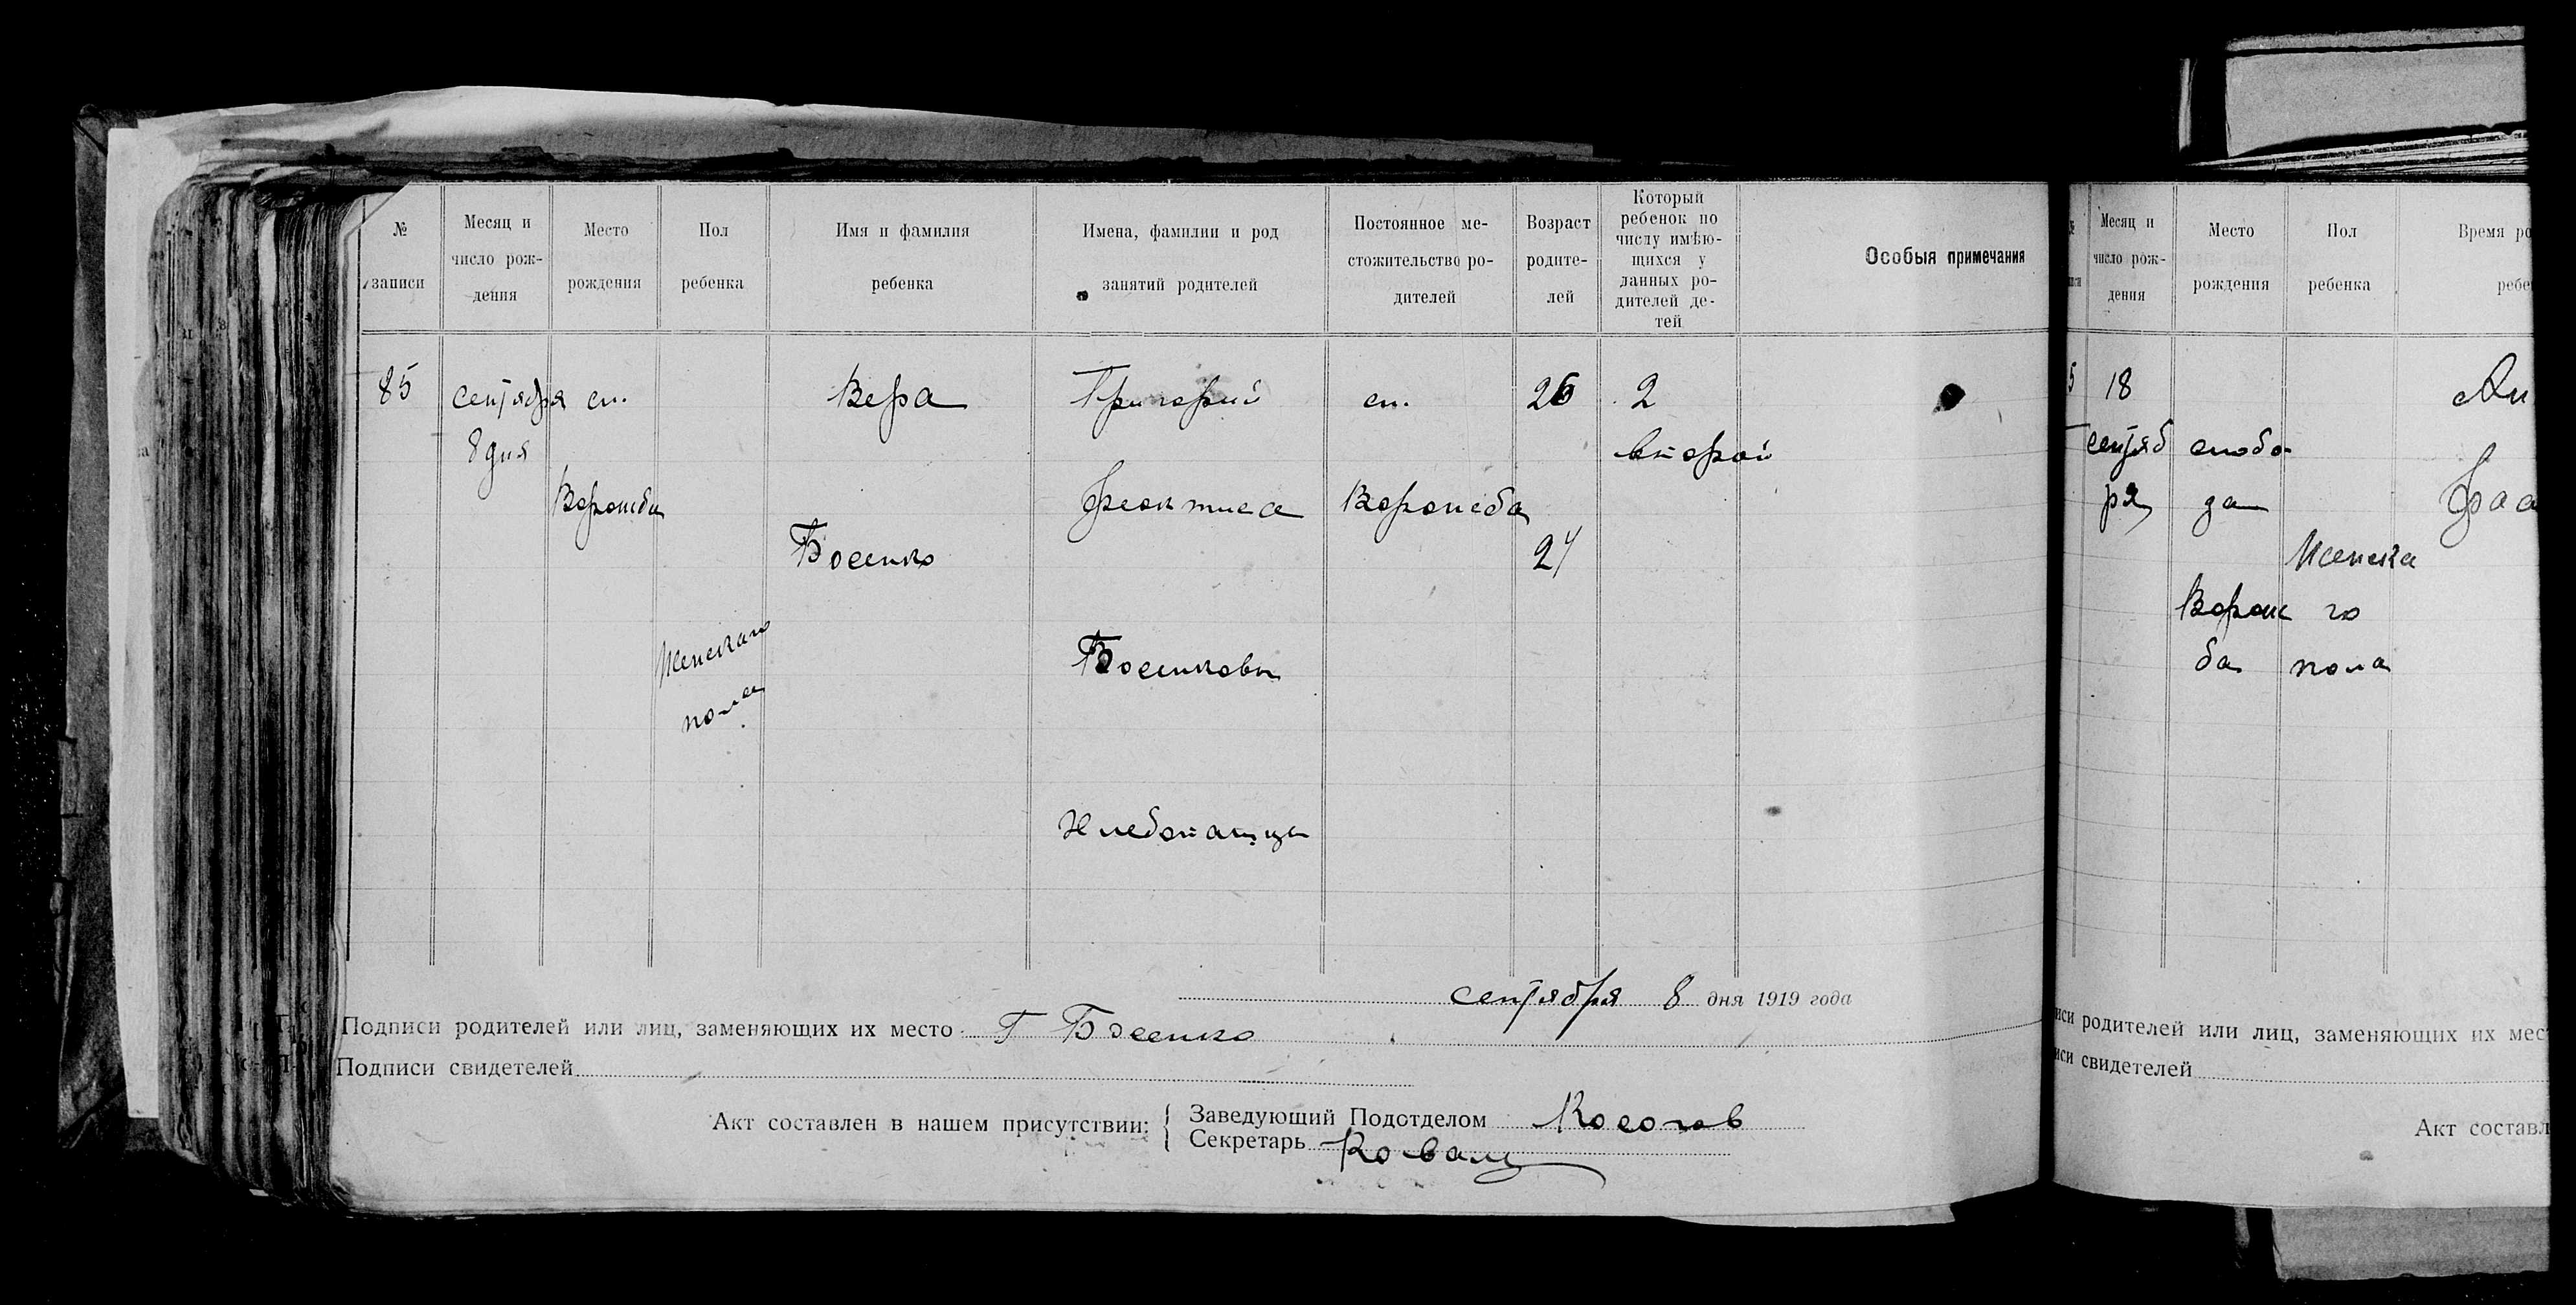 № записи
Месяц и число рож-дения
Место рождения
Пол ребенка
Имя и фамилия ребенка
Имена, фамилии и род занятий родителей
Постоянное ме-стожительство ро-дителей
Возраст родите-лей
Который ребенок по числу имѣю-щихся у данных ро-дителей де-тей
Особыя примечания
85 сентября сл. Вера Григорий сл. 26 2
8 дня второй
Ворожба Феоктиса Ворожба
Босенко 24
Женскаго
пола
Босенковы
Хлебопашцы
сентября 8 дня 1919 года
Подписи родителей или лиц, заменяющих их место Г Босенко
Подписи свидетелей
Акт составлен в нашем присутствии:
Заведующий Подотделом Косогов
Секретарь Коваль
Месяц и число рож-дения
Место рождения
Пол ребенка
Время
18
сентяб слобо
ря да
Женска
Ворож го
ба пола
родителей или лиц, заменяющих их
свидетелей
Акт